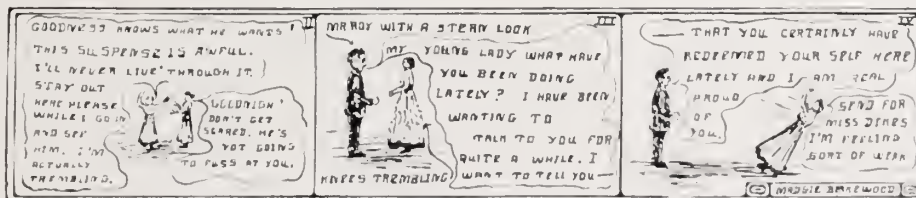 II
GOODNESS KNOWS WHAT HE WANTS!
THIS SUSPENSE IS AWFUL.
I'LL NEVER LIVE THROUGH IT.
STAY OUT
HERE PLEASE
WHILE I GO IN
AND SEE
HIM. I'M
ACTUALLY
TREMBLING.
GOLDNION!
DON'T GET
SCARED. HE'S
NOT GOING
TO FUSS AT YOU.
III
MR ROY WITH A STERN LOOK
MY YOUNG LADY WHAT HAVE
YOU BEEN DOING
LATELY? I HAVE BEEN
WANTING TO
TALK TO YOU FOR
QUITE A WHILE. I
WANT TO TELL YOU—
KNEES TREMBLING
IV
— THAT YOU CERTAINLY HAVE
REDEEMED YOUR SELF HERE
LATELY AND I AM REAL
PROUD
OF
YOU.
SEND FOR
MISS DINES
I'M FEELING
SORT OF WEAK
MADGIE BRAKEWOOD